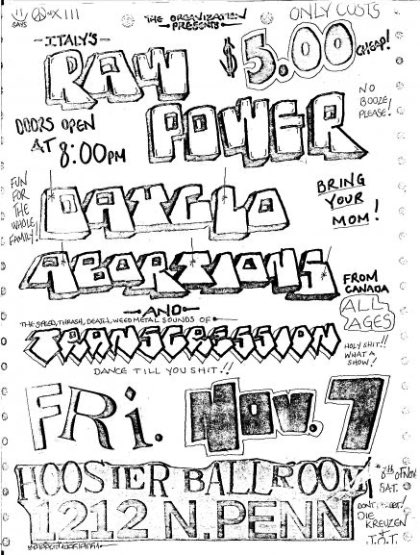 SAYS
XIII
THE ORGANIZATION
PRESENTS
ONLY COSTS
$5.00 CHEAP!
-ITALY'S-
RAW
POWER
DOORS OPEN
AT 8:00PM
NO
BOOZE,
PLEASE!
FUN
FOR
THE
WHOLE
FAMILY!
DAYGLO
ABORTIONS
BRING
YOUR
MOM!
FROM
CANADA
ALL
AGES
AND
THE SPEED, THRASH, DEATH, WEED METAL SOUNDS OF
TRANSGRESSION
HOLY SHIT!!
WHAT A
SHOW!
DANCE TILL YOU SHIT!!
FRI. NOV. 7
HOOSIER BALLROOM
1212 N. PENN
8th OF NOV.
SAT.
DONT FORGET
DIE
KREUZEN
+
T.O.T.